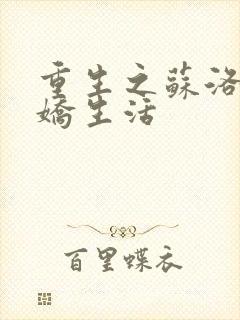 重生之蘇洛
嬌生活
百里蝶衣